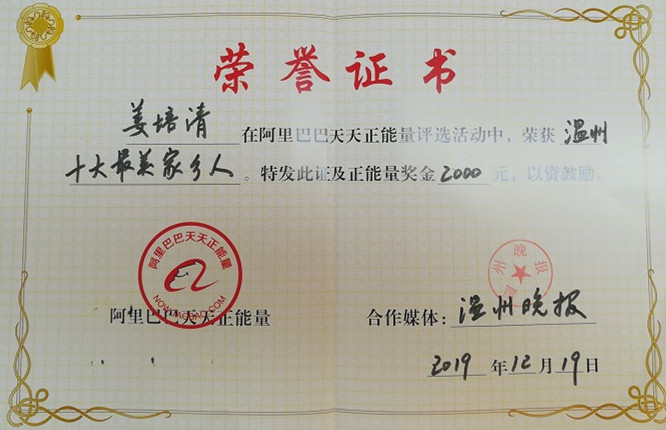 荣誉证书
姜培清 在阿里巴巴天天正能量评选活动中，荣获 温州
十大最美家乡人 。特发此证及正能量奖金 2000 元，以资鼓励。
阿里巴巴天天正能量
NOW.TAOBAO.COM
州晚报
阿里巴巴天天正能量
合作媒体：温州晚报
2019 年 12 月 19 日